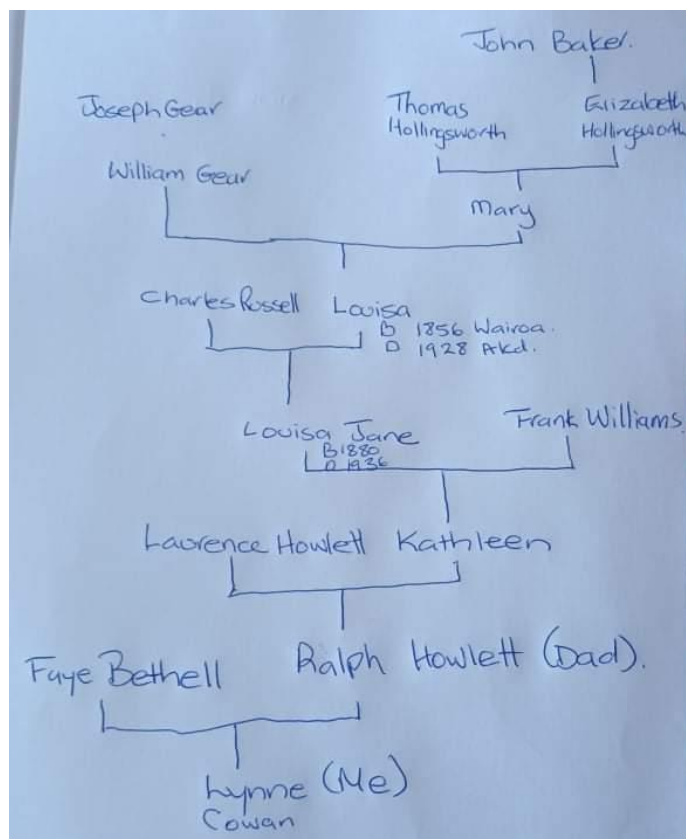 John Baker.
Joseph Gear
Thomas Hollingsworth
Elizabeth Hollingsworth
William Gear
Mary
Charles Russell Louisa
B 1856 Wairoa.
D 1928 Akd.
Louisa Jane
B 1880
D 1936
Frank Williams.
Laurence Howlett Kathleen
Faye Bethell
Ralph Howlett (Dad).
Lynne (Me)
Cowan